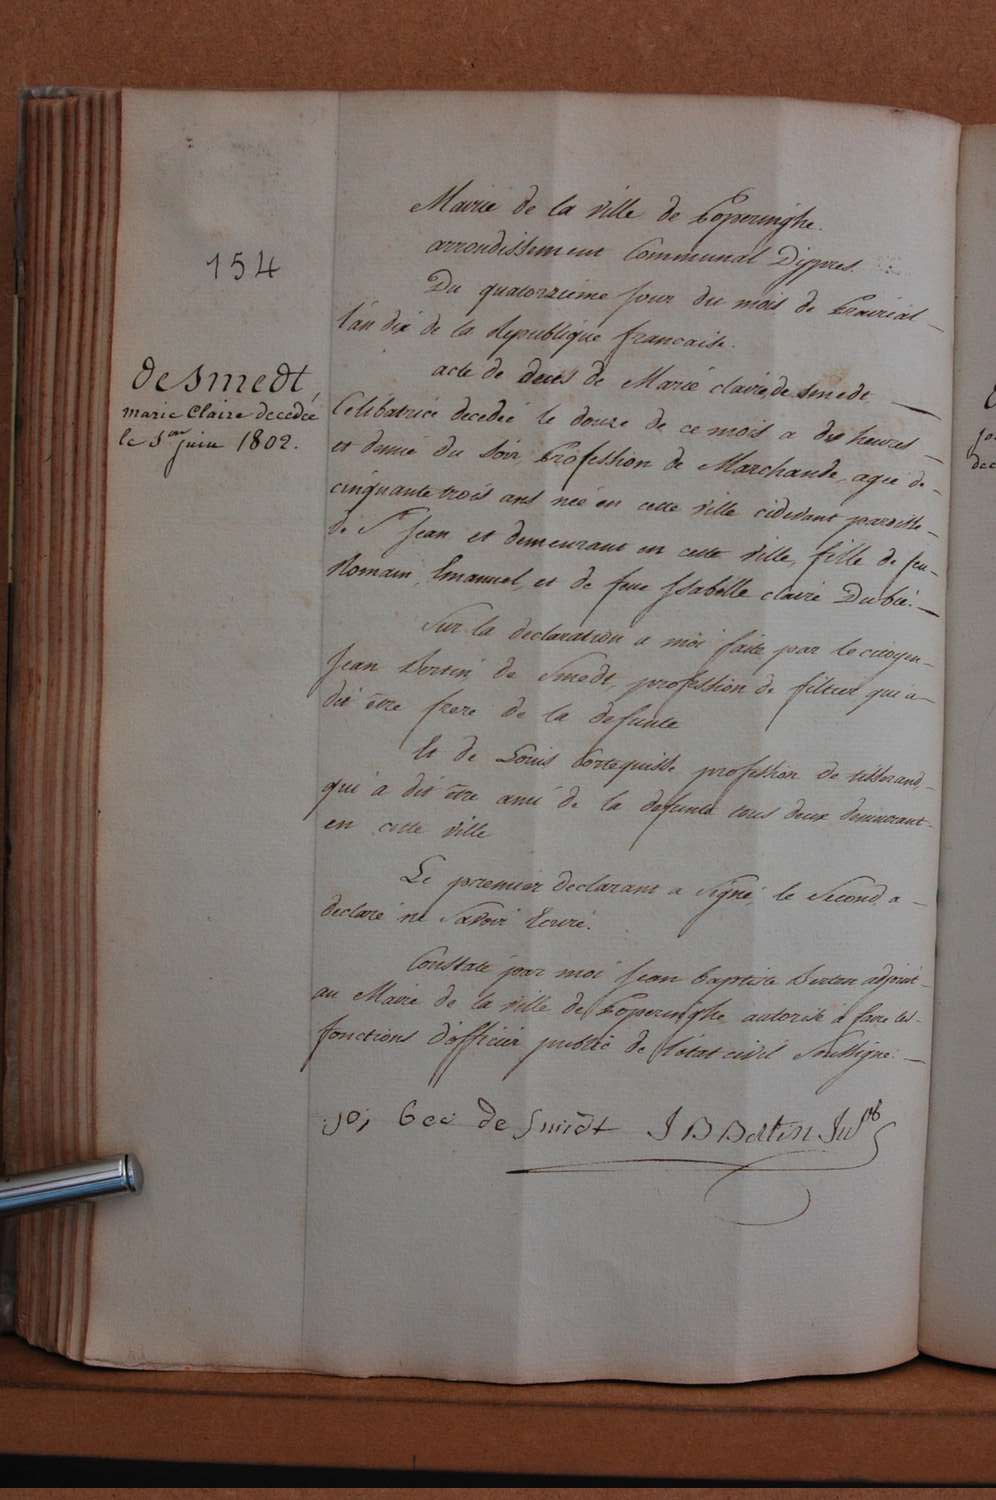 Mairie de la ville de Poperinghe.
arrondissement Communal D'ypres.
154
Du quatorzieme jour du mois de Prairial
l'an dix de la Republique francaise.
acte de deces de Marie claire de smedt
desmedt,
marie Claire decedée
le 1er juin 1802.
Celibatrice decedée le douze de ce mois a dix heures
et demie du Soir, Profession de Marchande, agée de
cinquante trois ans née en cette ville cidevant paroisse
de St Jean et demeurant en cette ville, fille de feu
Romain Emanuel, et de feue Isabelle claire
Sur la declaration a moi faite par le citoyen
Jean de Smedt, profession de filtier qui a
dit être frere de la defunte
Et de Louis profession de tisserand
qui a dit être ami de la defunte tous deux demeurant
en cette ville
Le premier declarant a Signé, le Second a
declaré ne Savoir Ecrire.
Constaté par moi Jean Baptiste adjoint
au Maire de la ville de Poperinghe autorisé a faire les
fonctions d'officier public de l'état civil Soussigné.
de Smedt J B